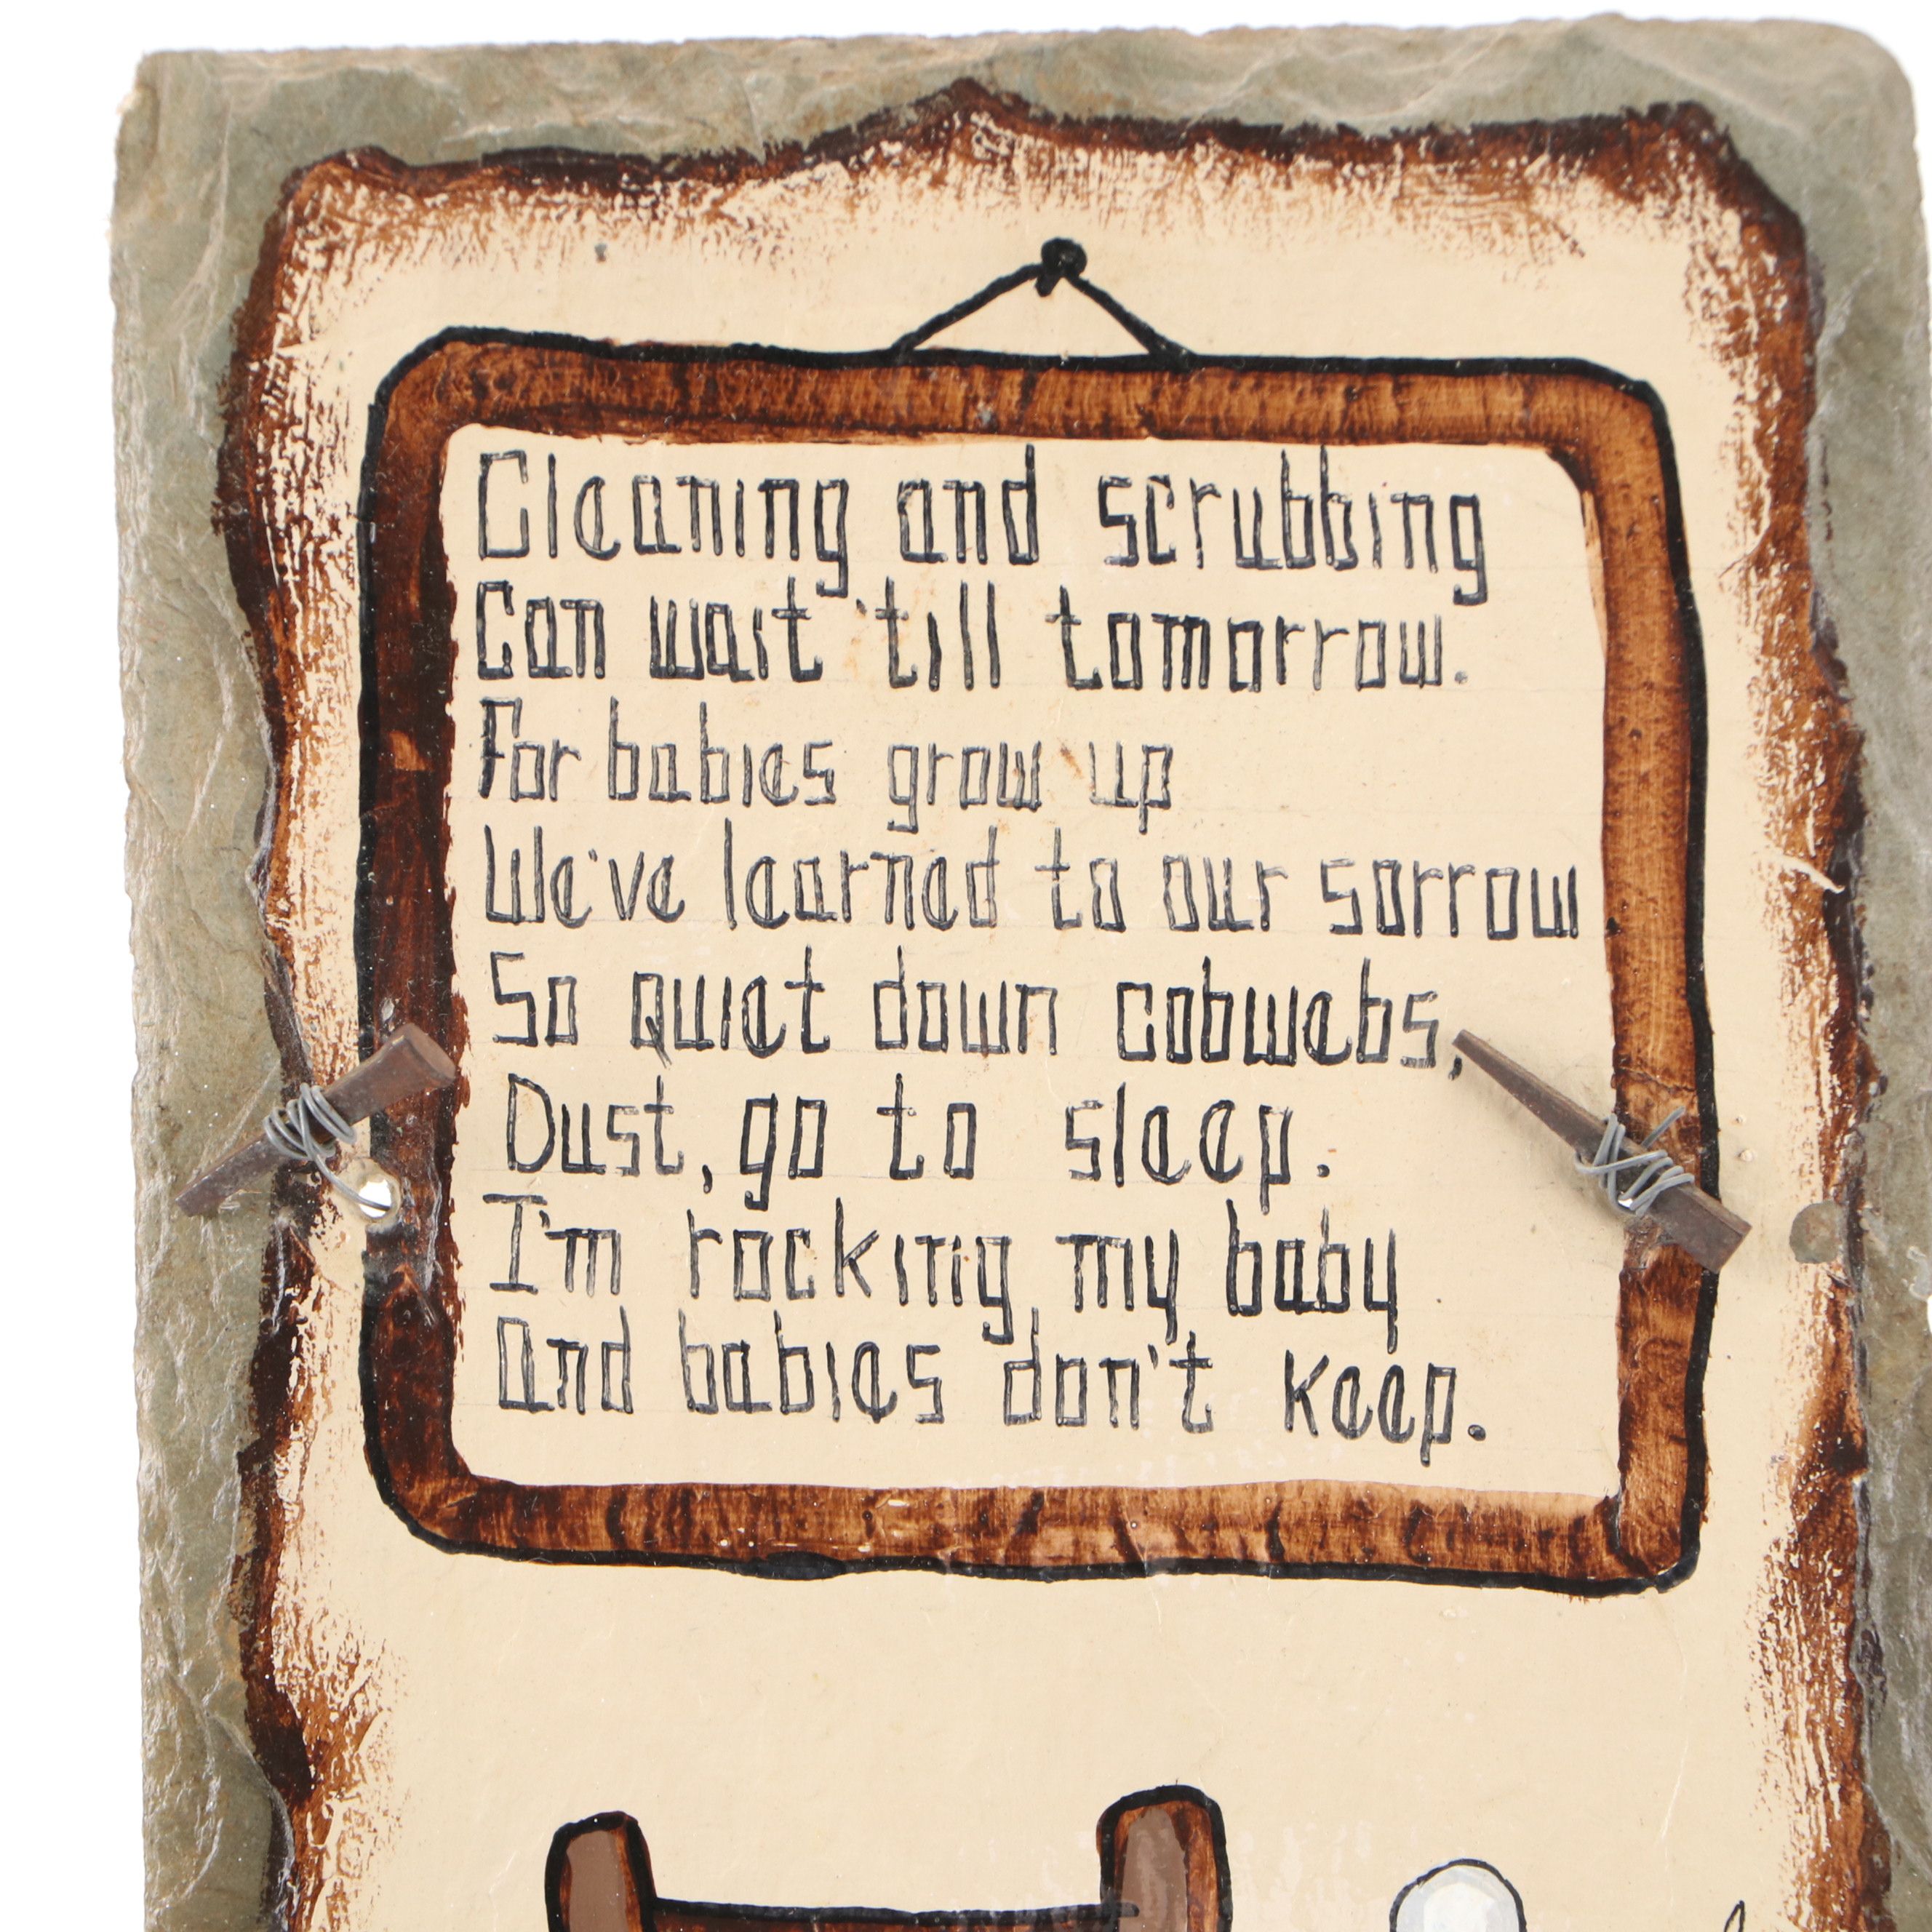 Cleaning and scrubbing
Can wait 'till tomorrow.
For babies grow up
We've learned to our sorrow
So quiet down cobwebs,
Dust, go to sleep.
I'm rocking my baby
And babies don't keep.